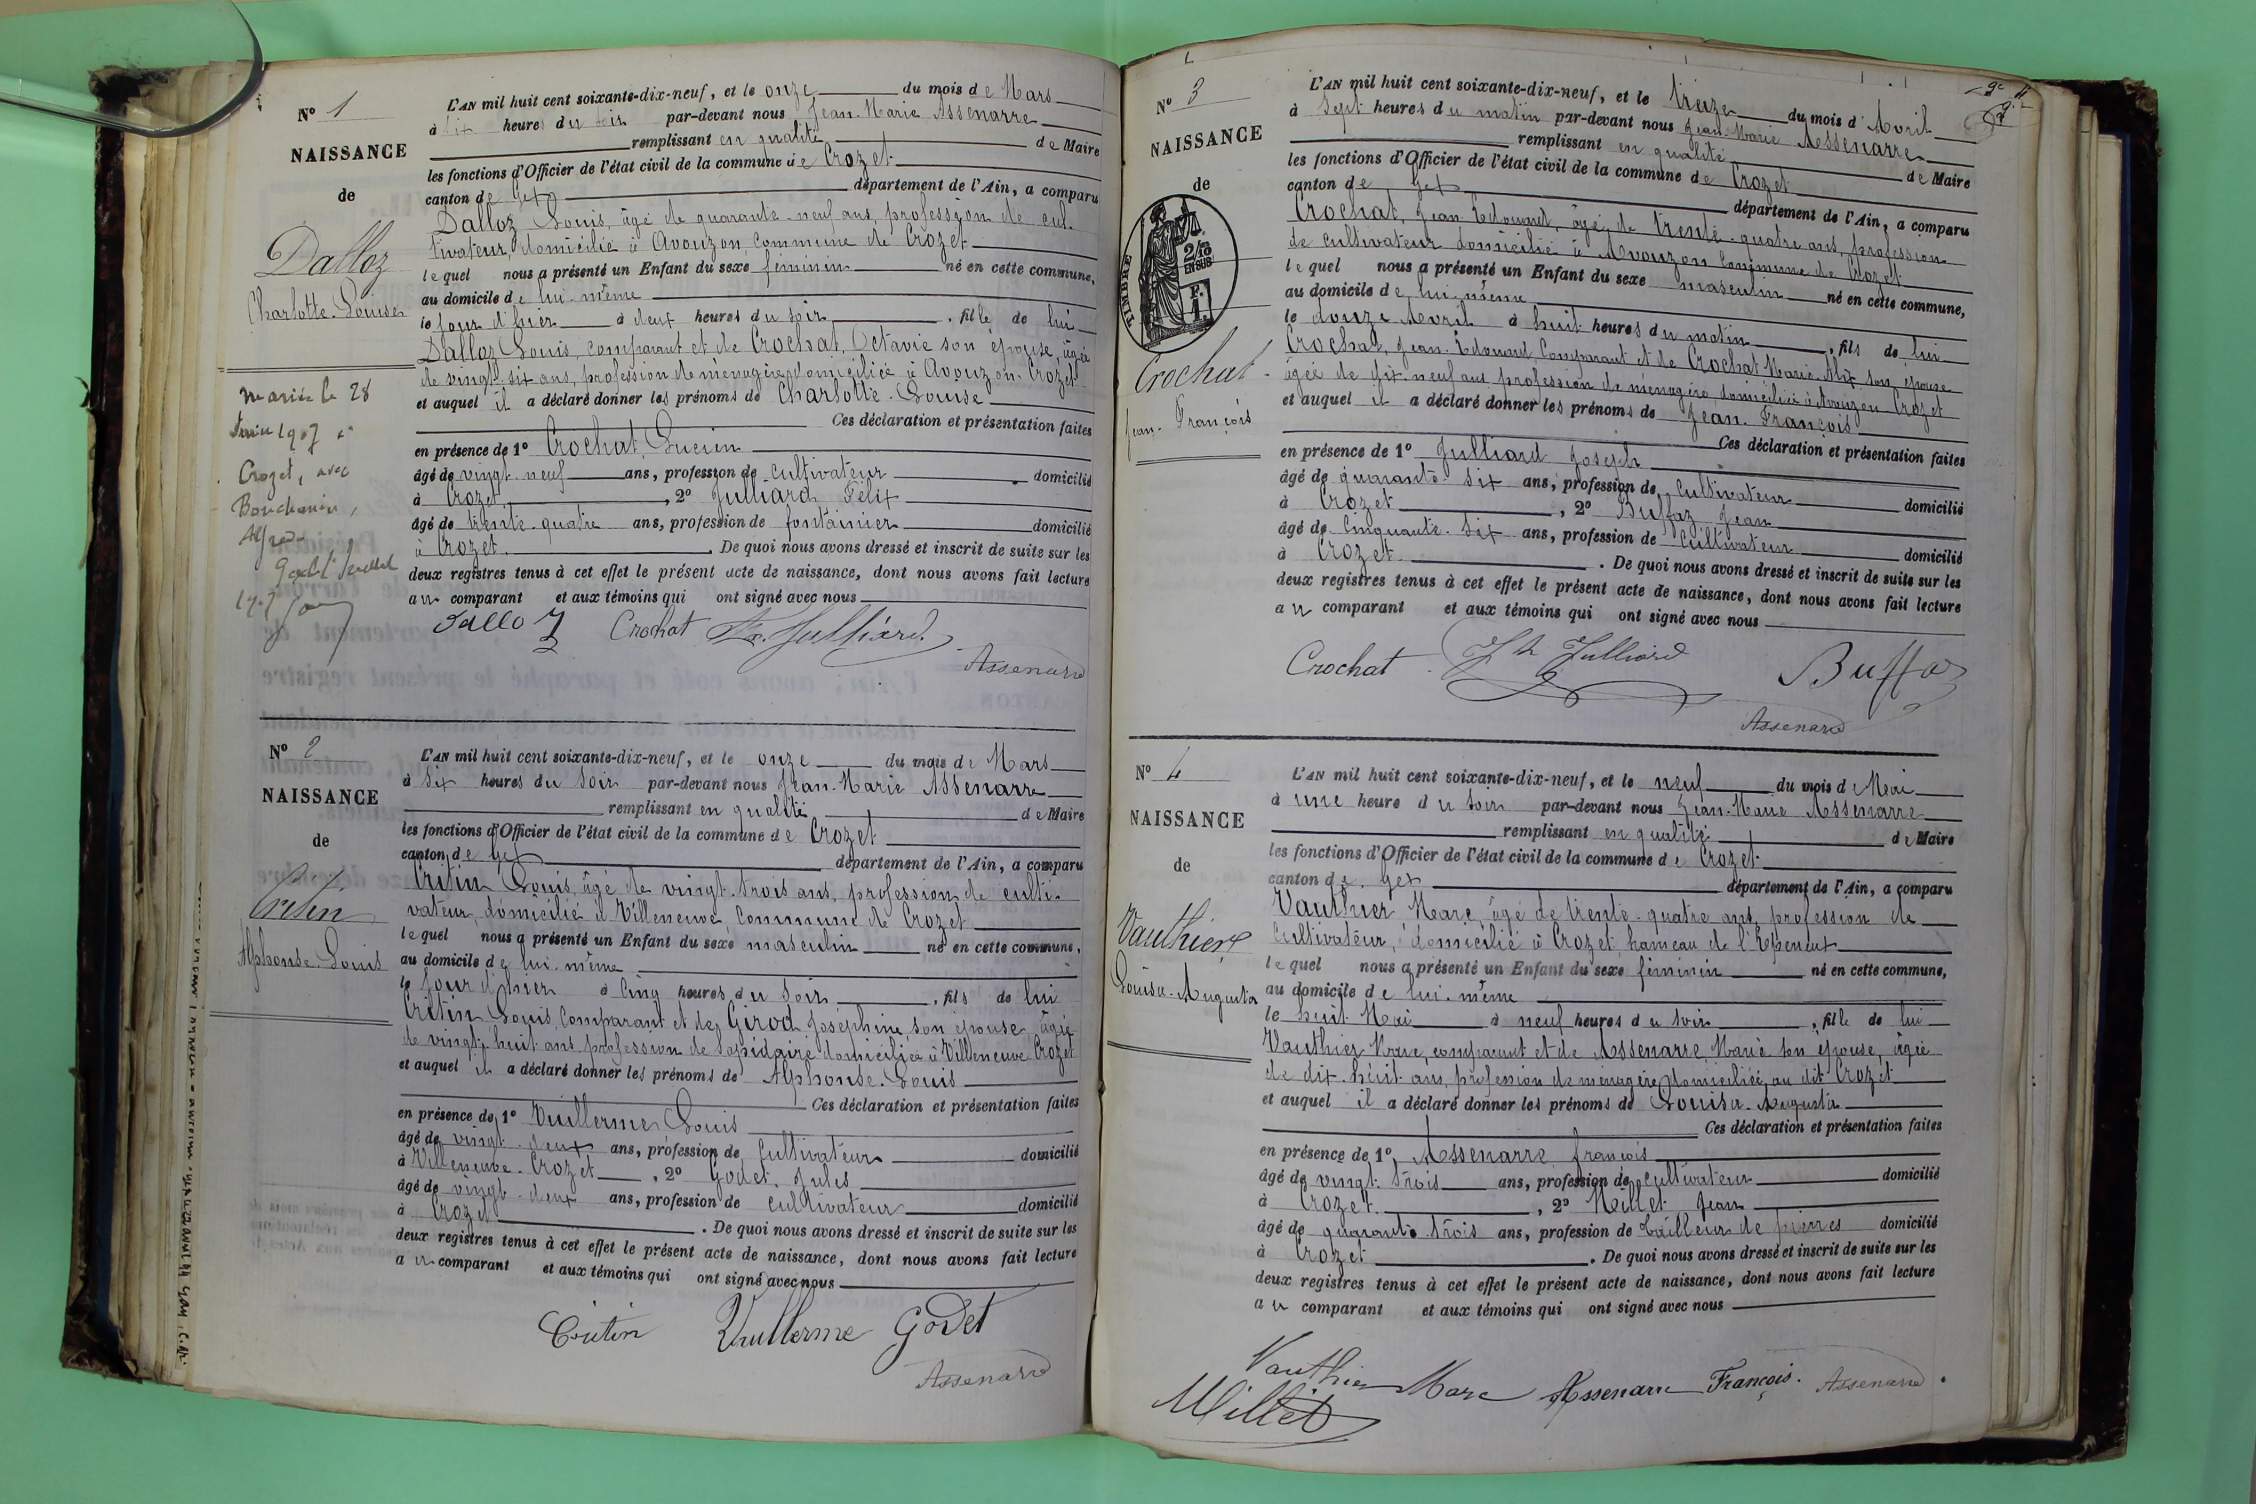 N° 1
NAISSANCE
de
Dalloz
Charlotte-Louise
mariée le 28
1907 à
Crozet, avec
Alfred
L'AN mil huit cent soixante-dix-neuf, et le onze du mois de Mars
à six heures du soir par-devant nous Jean-Marie Assenarre
remplissant en qualité de Maire
les fonctions d'Officier de l'état civil de la commune de Crozet
canton de Gex département de l'Ain, a comparu
Dalloz Louis, âgé de quarante-neuf ans, profession de cul-
tivateur, domicilié à Avouzon commune de Crozet
lequel nous a présenté un Enfant du sexe féminin né en cette commune,
au domicile de lui-même
le jour d'hier à deux heures du soir, fille de lui
Dalloz Louis, comparant et de Crochat, Octavie son épouse, âgée
de vingt-six ans, profession de ménagère domiciliée à Avouzon-Crozet
et auquel il a déclaré donner les prénoms de Charlotte-Louise
Ces déclaration et présentation faites
en présence de 1° Crochat, Lucien
âgé de vingt-neuf ans, profession de cultivateur domicilié
à Crozet, 2° Julliard Félix
âgé de trente-quatre ans, profession de fontainier domicilié
à Crozet. De quoi nous avons dressé et inscrit de suite sur les
deux registres tenus à cet effet le présent acte de naissance, dont nous avons fait lecture
au comparant et aux témoins qui ont signé avec nous
Dalloz Crochat Fx. Julliard
Assenard
N° 2
NAISSANCE
de
Cretin
Alphonse-Louis
L'AN mil huit cent soixante-dix-neuf, et le onze du mois de Mars
à six heures du soir par-devant nous Jean-Marie Assenarre
remplissant en qualité de Maire
les fonctions d'Officier de l'état civil de la commune de Crozet
canton de Gex département de l'Ain, a comparu
Crétin Louis, âgé de vingt-trois ans, profession de culti-
vateur, domicilié à Villeneuve commune de Crozet
lequel nous a présenté un Enfant du sexe masculin né en cette commune,
au domicile de lui-même
le jour d'hier à cinq heures du soir, fils de lui
Crétin Louis, comparant et de Girod Joséphine son épouse, âgée
de vingt-huit ans profession de lapidaire domiciliée à Villeneuve-Crozet
et auquel il a déclaré donner les prénoms de Alphonse-Louis
Ces déclaration et présentation faites
en présence de 1° Vuillerme Louis
âgé de vingt-deux ans, profession de cultivateur domicilié
à Villeneuve-Crozet, 2° Godet, Jules
âgé de vingt-deux ans, profession de cultivateur domicilié
à Crozet. De quoi nous avons dressé et inscrit de suite sur les
deux registres tenus à cet effet le présent acte de naissance, dont nous avons fait lecture
au comparant et aux témoins qui ont signé avec nous
Crétin Vuillerme Godet
Assenard
N° 3
NAISSANCE
de
TIMBRE
2/10
EN SUS
F.
1.
Crochat
Jean-François
L'AN mil huit cent soixante-dix-neuf, et le treize du mois d'Avril
à sept heures du matin par-devant nous Jean-Marie Assenarre
remplissant en qualité de Maire
les fonctions d'Officier de l'état civil de la commune de Crozet
canton de Gex département de l'Ain, a comparu
Crochat, Jean-Edouard, âgé de trente-quatre ans, profession
de cultivateur domicilié à Avouzon Commune de Crozet
lequel nous a présenté un Enfant du sexe masculin né en cette commune,
au domicile de lui-même
le douze Avril à huit heures du matin, fils de lui
Crochat, Jean-Edouard, Comparant et de Crochat Marie-Alix son épouse
âgée de dix-neuf ans, profession de ménagère domiciliée à Avouzon Crozet
et auquel il a déclaré donner les prénoms de Jean-François
Ces déclaration et présentation faites
en présence de 1° Julliard Joseph
âgé de quarante-six ans, profession de cultivateur domicilié
à Crozet, 2° Buffaz Jean
âgé de cinquante-six ans, profession de cultivateur domicilié
à Crozet. De quoi nous avons dressé et inscrit de suite sur les
deux registres tenus à cet effet le présent acte de naissance, dont nous avons fait lecture
au comparant et aux témoins qui ont signé avec nous
Crochat Jh Julliard Buffaz
Assenard
N° 4
NAISSANCE
de
Vauthier
Louisa-Augusta
L'AN mil huit cent soixante-dix-neuf, et le neuf du mois de Mai
à une heure du soir par-devant nous Jean-Marie Assenarre
remplissant en qualité de Maire
les fonctions d'Officier de l'état civil de la commune de Crozet
canton de Gex département de l'Ain, a comparu
Vauthier Marc, âgé de trente-quatre ans, profession de
cultivateur, domicilié à Crozet hameau de l'Epeneut
lequel nous a présenté un Enfant du sexe féminin né en cette commune,
au domicile de lui-même
le huit Mai à neuf heures du soir, fille de lui
Vauthier Marc, comparant et de Assenarre, Marie son épouse, âgée
de dix-huit ans, profession de ménagère domiciliée au dit Crozet
et auquel il a déclaré donner les prénoms de Louisa-Augusta
Ces déclaration et présentation faites
en présence de 1° Assenarre françois
âgé de vingt-trois ans, profession de cultivateur domicilié
à Crozet, 2° Millet Jean
âgé de quarante-trois ans, profession de tailleur de pierres domicilié
à Crozet. De quoi nous avons dressé et inscrit de suite sur les
deux registres tenus à cet effet le présent acte de naissance, dont nous avons fait lecture
au comparant et aux témoins qui ont signé avec nous
Vauthier Marc Assenarre François. Assenard
Millet